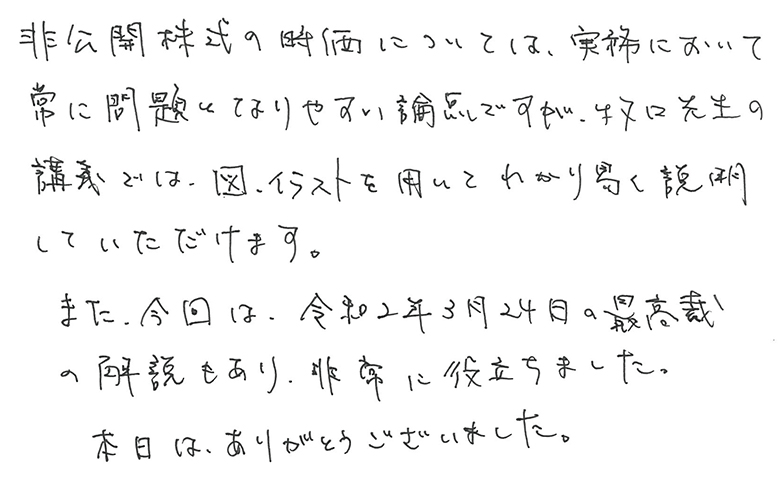 非公開株式の時価については、実務において
常に問題となりやすい論点ですが、牧口先生の
講義では、図、イラストを用いてわかり易く説明
していただけます。
また、今回は、令和2年3月24日の最高裁
の解説もあり、非常に役立ちました。
本日は、ありがとうございました。